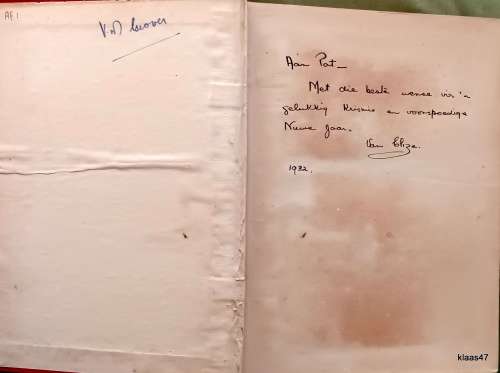 AE 1
Aan Pat –
Met die beste wense vir 'n
gelukkig Krismis en voorspoedige
Nuwe Jaar.
Van Elize.
1932.
klaas47